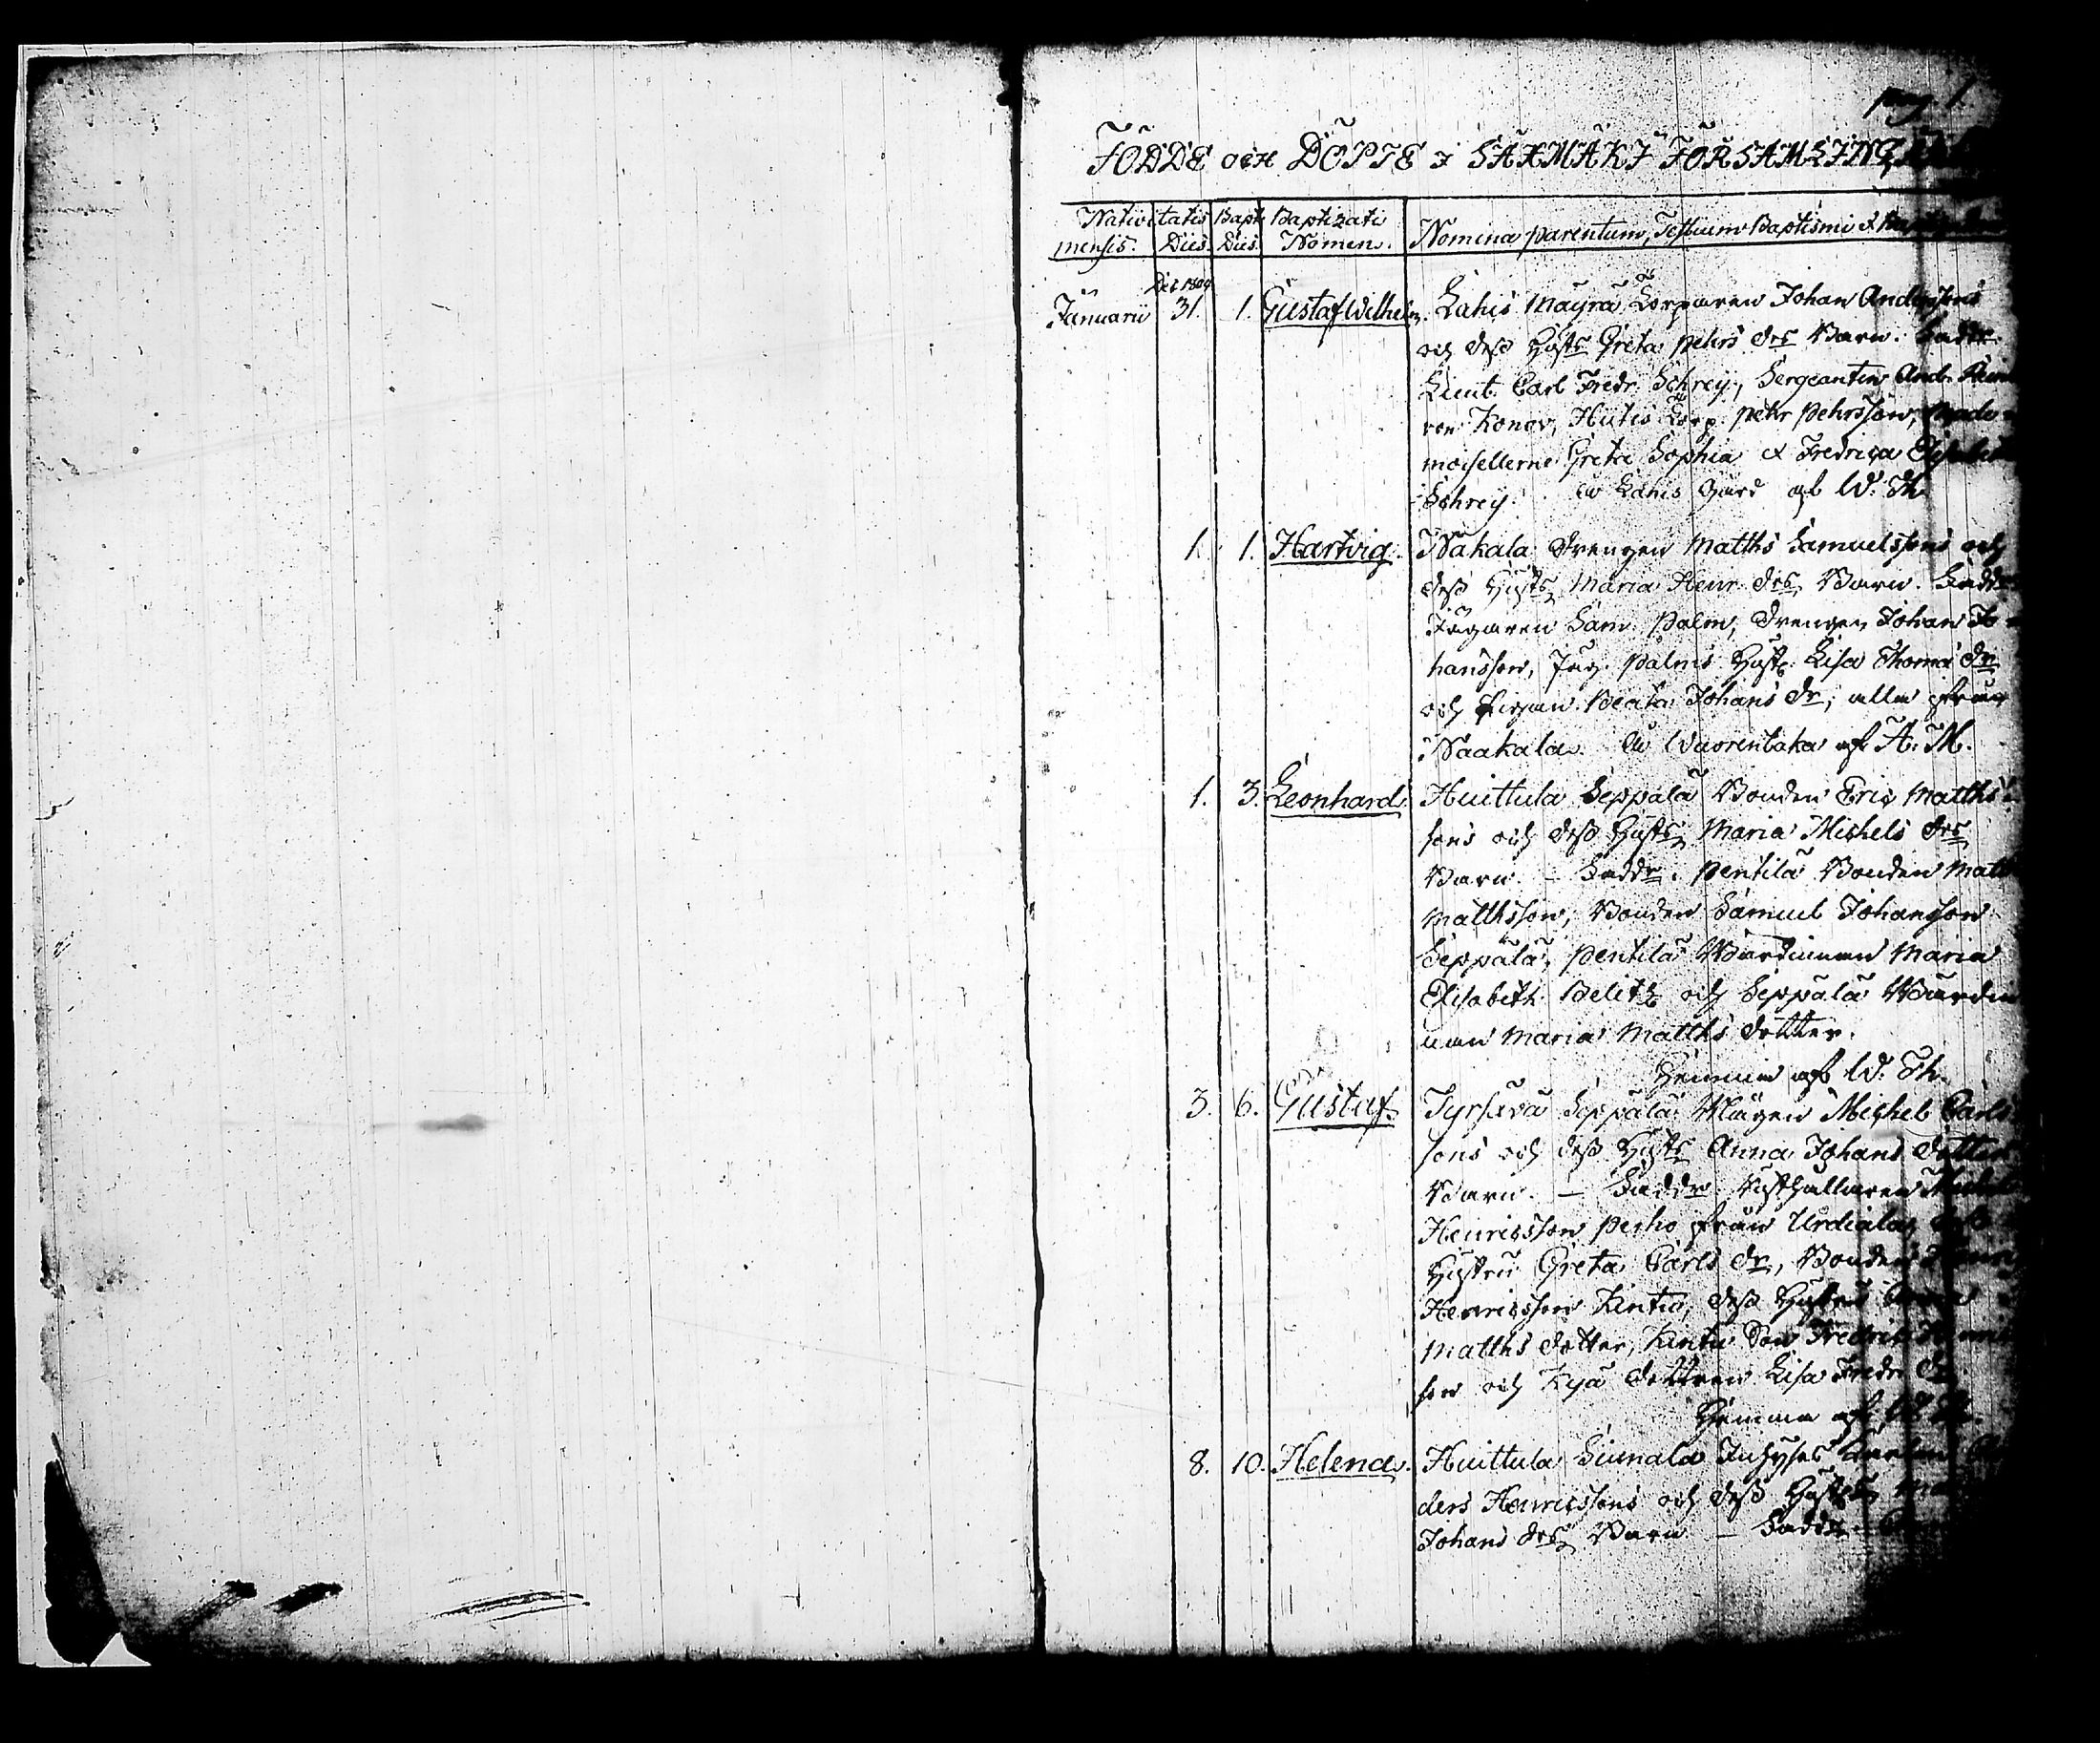 pag. 1.
FÖDDE OCH DÖPTE I SÄXMÄKI FÖRSAMLING
Nativitatis Bapt. Baptizati
mensis. Dies. Dies. Nomen. Nomina parentum, Testium Baptismi &
Dec. 1809
Januarii 31. 1. Gustaf Wilhelm. Lahis Mäyrä Torparen Johan Anderssons
och dess Hustrs Greta Pehrs drs Barn. Faddr.
Lieut. Carl Fredr. Schrey, Sergeanten And.
von Konow, Hutis Torp. Pehr Pehrsson, Made-
moisellerne Greta Sophia & Fredrica Elisabeth
Schrey. Lahis Gård af W. Th.
1. 1. Hartvig. Nakala Drengen Matths Samuelssons och
dess Hustrs Maria Henr. drs Barn. Faddr.
Jägaren Sam. Palm, Drengen Johan Jo-
hansson, Jäg. Palms Hustr. Lisa Thomæ dr
och Pigan Beata Johans dr, alla från
Naakala. af A. M.
1. 3. Leonhard. Huittula Seppälä Bonden Eric Matths-
sons och dess Hustrs Maria Michels drs
Barn. — Faddr. Pentilä Bonden Matts
Matthsson, Bonden Samuel Johansson
Seppälä, Pentilä Wärdinnan Maria
Elisabeth Belitz och Seppälä Wärdin-
nan Maria Matths dotter.
Hemma af W. Th.
3. 6. Gustaf. Tyrsävä Seppälä Mågen Michel Carls-
sons och dess Hustrs Anna Johans dotters
Barn. — Faddr. Rusthållaren
Henricsson Perho från Urdiala, dess
Hustru Greta Carls dr, Bonden
Henricsson Kentis, dess Hustru
Matths dotter, Son Fredric
son och Kyä dottren Lisa Fredr. dr
Hemma af W. Th.
8. 10. Helena. Huittula Simala Inhyses Karlen An-
ders Henricssons och dess Hustrs
Johans drs Barn — Faddr.